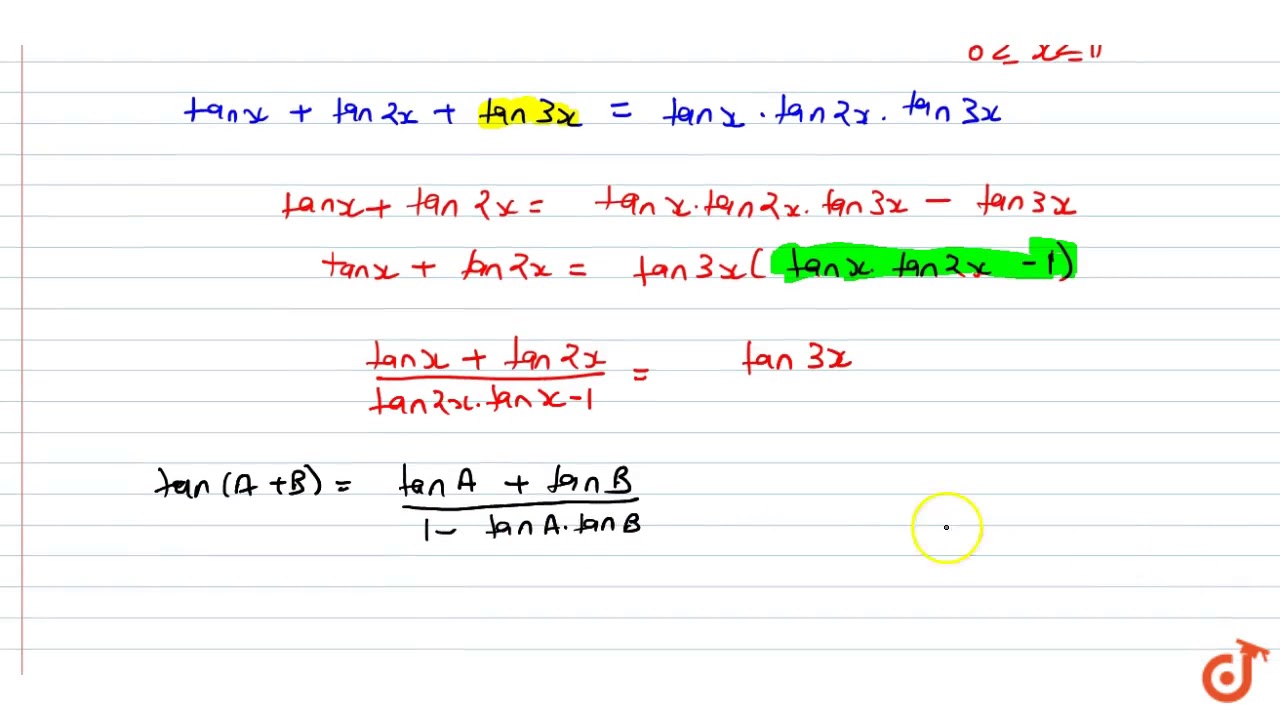 0 ≤ x ≤ π
tan x + tan 2x + tan 3x = tan x . tan 2x . tan 3x
tan x + tan 2x = tan x . tan 2x . tan 3x - tan 3x
tan x + tan 2x = tan 3x ( tan x . tan 2x - 1 )
tan x + tan 2x
tan 2x . tan x - 1
= tan 3x
tan (A + B) =
tan A + tan B
1 - tan A . tan B